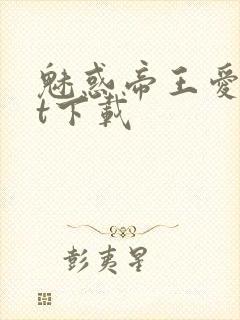 魅惑帝王愛
t下載
彭夷星